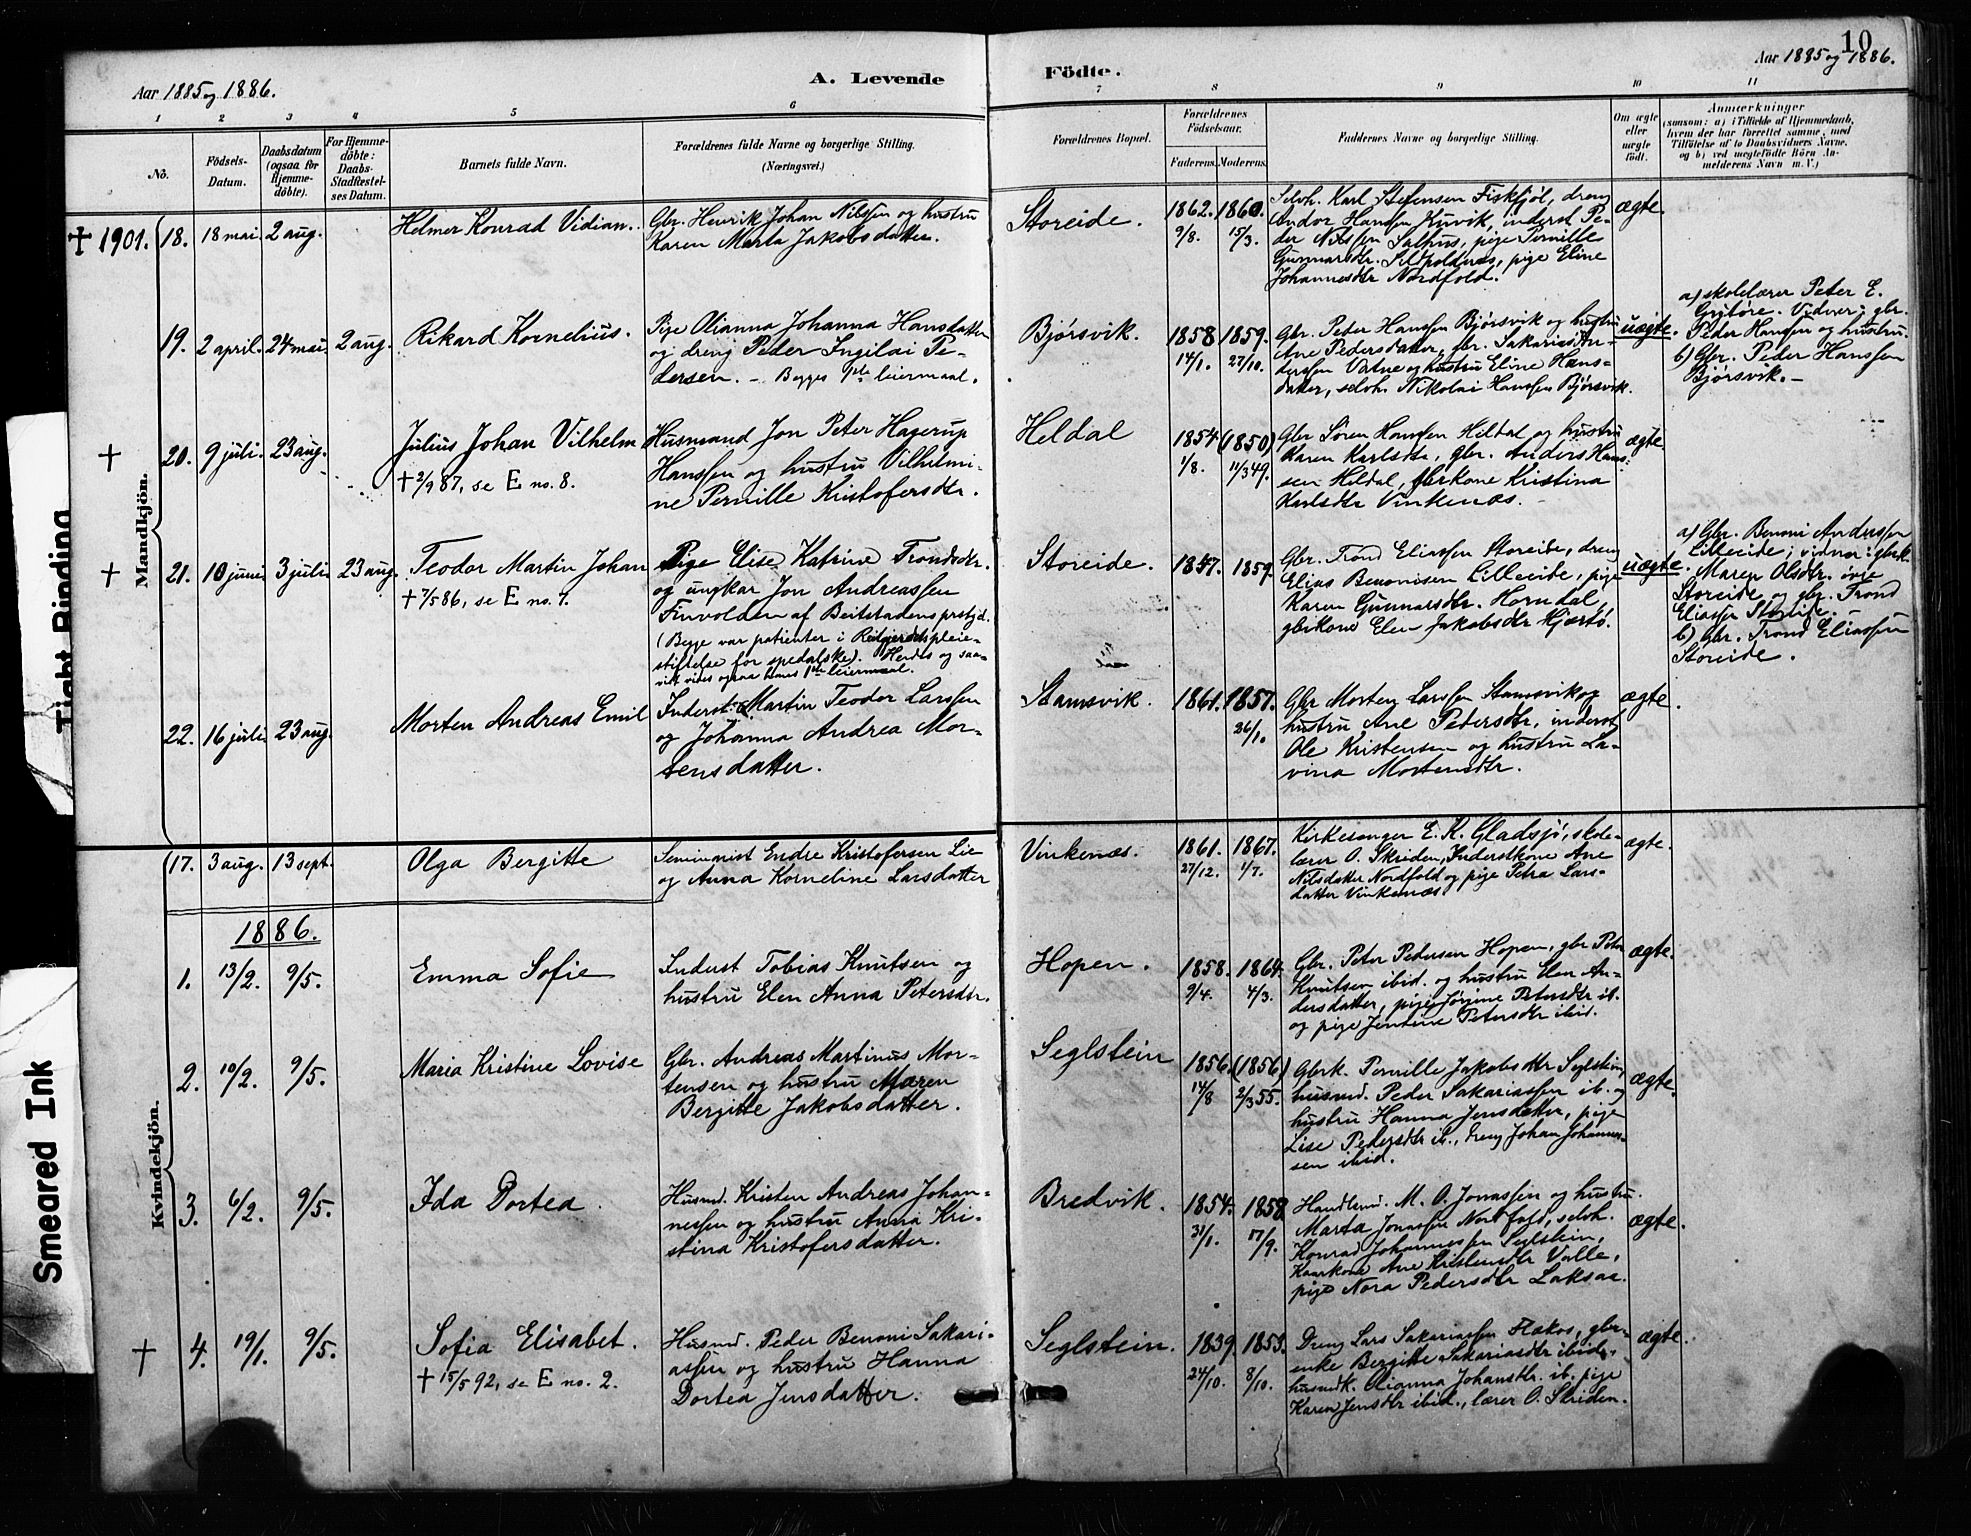 10
Aar 1885 og 1886.
A. Levende
Födte.
Aar 1885 og 1886.
1
2
3
4
5
6
7
8
9
10
11
No.
Födsels-
Datum.
Daabsdatum
(ogsaa for
Hjemme-
döbte).
For Hjemme-
döbte:
Daabs-
Stadfæstel-
ses Datum.
Barnets fulde Navn.
Forældrenes fulde Navne og borgerlige Stilling.
(Næringsvei.)
Forældrenes Bopæl.
Forældrenes
Födselsaar.
Faderens.
Moderens.
Faddernes Navne og borgerlige Stilling.
Om ægte
eller
uægte
födt.
Anmærkninger
(saasom: a) i Tilfælde af Hjemmedaab,
hvem der har forrettet samme, med
Tilföielse af to Daabsvidners Navne,
og b) ved uegtefödte Börn An-
melderens Navn m. V.)
Mandkjön.
† 1901.
18.
18 mai
2 aug.
Helmer Konrad Vidian.
Gbr. Henrik Johan Nilssen og hustru
Karen Marta Jakobsdatter.
Storeide.
1862.
9/8.
1860.
15/3.
Selvh. Karl Stefensen Fiskfjøl, dreng
Andor Hanssen Kuvik, inderst Pe-
der Nilssen Salhus, pige Pernille
Gunnarsdtr. Sildpoldnes, pige Eline
Johannesdtr Nordfold.
ægte.
19.
2 april.
24 mai
2 aug.
Rikard Kornelius.
Pige Olianna Johanna Hansdatter
og dreng Peder Ingilai Pe-
dersen. – Begges 1ste leiermaal.
Bjørsvik.
1858
14/1.
1859.
27/10.
Gbr. Peder Hanssen Bjørsvik og hustru
Ane Pedersdatter, gbr. Sakarias An-
derssen Vatne og hustru Eline Hans-
datter, selvh. Nikolai Hanssen Bjørsvik.
uægte.
a) skolelærer Peter E.
Grytøre. Vidner: gbr.
Peder Hanssen og hustru.
b) Gbr. Peder Hanssen
Bjørsvik. –
†
20.
9 juli.
23 aug.
Julius Johan Vilhelm
† 2/9 87, se E no. 8.
Husmand Jon Peter Hagerup
Hanssen og hustru Vilhelmi-
ne Pernille Kristofersdtr.
Heldal
1854
1/8.
(1850)
11/3 49.
Gbr Søren Hanssen Hildal og hustru
Karen Karlsdtr, gbr. Anders Hans-
sen Hildal, gbrkone Kristina
Karlsdtr Vinkenæs.
ægte.
†
21.
10 juni
3 juli
23 aug.
Teodor Martin Johan
† 7/5 86, se E no. 7.
Pige Elise Katrine Trondsdtr.
og ungkar Jon Andreassen
Finvolden af Beitstadens prstgd.
(Begge var patienter i Reitgjerdets pleie-
stiftelse for spedalske). Hendes og saa-
vidt vides ogsaa hans 1ste leiermaal.
Storeide.
1847.
1859.
Gbr. Trond Eliassen Storeide, dreng
Elias Benonisen Lilleeide, pige
Karen Gunnarsdtr. Horndal,
gbrkone Elen Jakobsdtr Hjærtø.
uægte.
a) Gbr. Benoni Anderssen
Lilleeide; vidner: gbrk.
Maren Olsdtr. øvre
Storeide og gbr. Trond
Eliassen Storeide. –
b) gbr. Trond Eliassen
Storeide.
22.
16 juli
23 aug.
Morten Andreas Emil
Inderst. Martin Teodor Larssen
og Johanna Andrea Mor-
tensdatter.
Stamsvik.
1861.
1857.
26/1.
Gbr Morten Larssen Stamsvik og
hustru Ane Pedersdtr, inderst
Ole Kristensen og hustru La-
vina Mortensdtr.
ægte.
Kvindekjön.
17.
3 aug.
13 sept.
Olga Bergitte
Seminarist Endre Kristofersen Lie
og Anna Korneline Larsdatter
Vinkenæs.
1861.
27/12.
1867.
1/7.
Kirkesanger E. K. Gladsjø, skole-
lærer O. Skriden, Inderstkone Ane
Nilsdatter Nordfold og pige Petra Lars-
datter Vinkenæs.
ægte.
1886.
1.
13/2.
9/5.
Emma Sofie
Inderst Tobias Knutsen og
hustru Elen Anna Petersdtr.
Hopen.
1858.
9/4.
1864.
4/3.
Gbr. Peter Pedersen Hopen, gbr Peter
Knutsen ibid. og hustru Elen An-
dersdatter, pige Jørgine Petersdtr ib.
og pige Jentine Petersdtr ibid.
ægte.
2.
10/2.
9/5.
Maria Kristine Lovise
Gbr. Andreas Martinus Mor-
tensen og hustru Maren
Bergitte Jakobsdatter.
Seglstein
1856.
14/8
(1856)
2/3 55.
Gbrk. Pernille Jakobsdtr Seglstein,
husmd. Peder Sakariassen ib. og
hustru Hanna Jensdatter, pige
Lise Pedersdtr ib., dreng Johan Johannes-
sen ibid.
ægte.
3.
6/2.
9/5.
Ida Dortea.
Husmd. Kristen Andreas Johan-
nessen og hustru Anna Kri-
stina Kristofersdatter.
Bredvik.
1854.
31/1.
1858
17/9.
Handlsmd. M. O. Jonassen og hustru
Marta Jonassen Nordfold, selvh.
Konrad Johannessen Seglstein,
Kaarkone Ane Kristensdtr Valle,
pige Nora Pedersdtr Laksaa.
ægte.
†
4.
19/1.
9/5.
Sofia Elisabet.
† 15/5 92, se E no. 2.
Husmd. Peder Benoni Sakari-
assen og hustru Hanna
Dortea Jensdatter.
Seglstein.
1839.
24/10.
1853.
8/10.
Dreng Lars Sakariassen Flakos, gbr-
enke Bergitte Sakariasdtr ibid.,
husmdk. Olianna Johansdtr. ib. pige
Karen Jensdtr ibid., lærer O. Skriden.
ægte.
Tight Binding
Smeared Ink